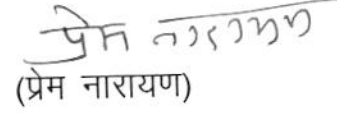 प्रेम नारायण
(प्रेम नारायण)